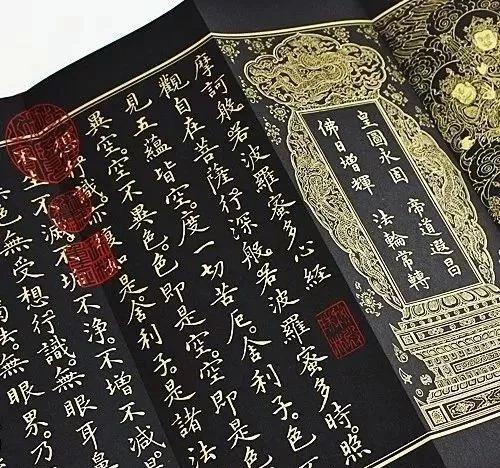 皇圖永固　帝道遐昌
佛日增輝　法輪常轉
摩訶般若波羅蜜多心經
觀自在菩薩行深般若波羅蜜多時。照
見五蘊皆空。度一切苦厄。舍利子。色
異空。空不異色。色即是空。空即是
識。亦復如是舍利子。是諸法
不生不滅。不垢不淨。不增不減。是
色無受想行識。無眼耳鼻
法。無眼界。乃